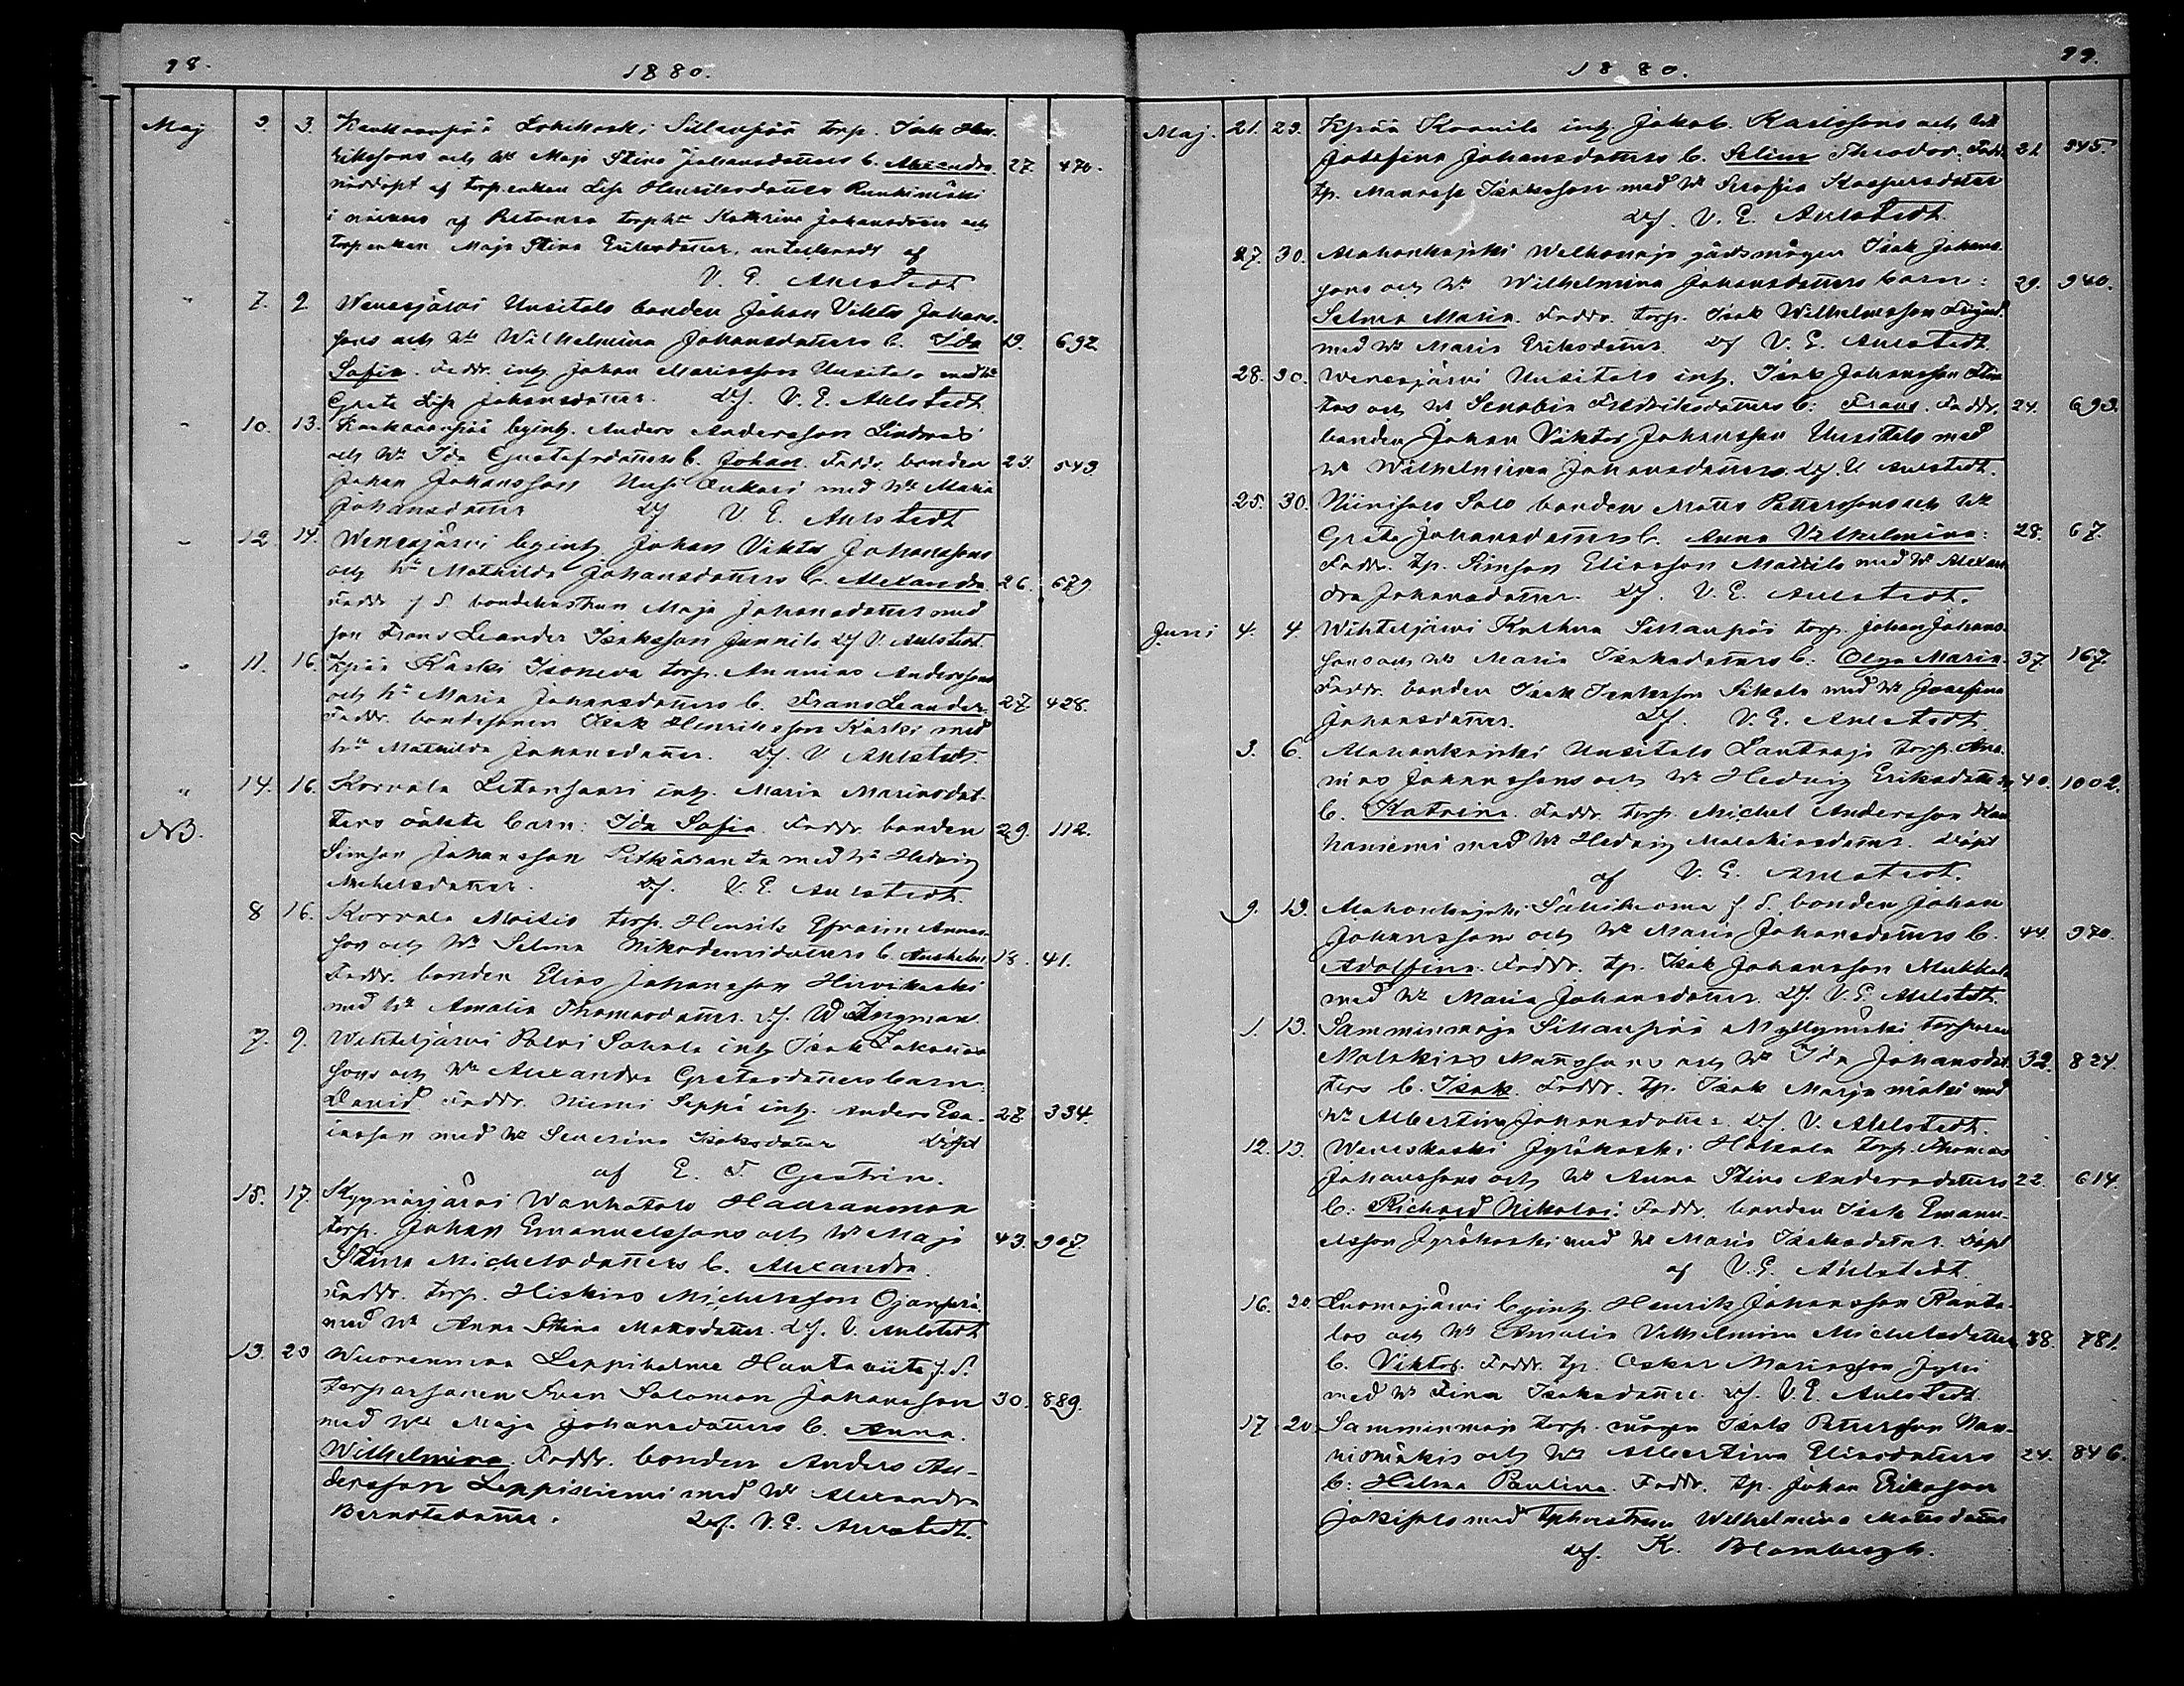 98.
1880.
Maj 3. 3. Kankaanpää Lohikoski Sillanpää torp. Isak Hen.
Erikssons och h:u Maja Stina Johansdotters b. Alexandra. 27. 470.
nöddöpt af torp.enkan Lisa Henriksdotter Runkimäki
i närvaro af torph:u Kathrina Johansdotter och
torp.enkan Maja Stina Eriksdotter, antecknadt af
V. E. Ahlstedt
" 7. 9 Wenesjärvi Uusitalo bonden Johan Viktor Johans-
sons och h:u Wilhelmina Johansdotters b. Ida 19. 692
Sofia. Faddr. inh. Johan Mariasson Uusitalo med h:u
Greta Lisa Johansdotter. D.f. V. E. Ahlstedt.
" 10. 13. Kankaanpää byinh. Anders Andersson Lindroos
och h:u Ida Gustafsdotters b. Johan. Faddr. bonden 23. 543
Johan Johansson med h:u Maria
Johansdotter D.f. V. E. Ahlstedt
" 12 14. Wenesjärvi byinh. Johan Viktor Johanssons
och h:u Mathilda Johansdotters b. Alexandra. 26. 679
Faddr. f.d. bondehustrun Maja Johansdotter med
son Frans Leander Isaksson Junnila D.f. V. Ahlstedt.
" 11. 16. Kpää Käski Isoneva torp. Ananias Anderssons
och h:u Maria Johansdotters b. Frans Leander. 27 428.
Faddr. bondesonen Isak Henriksson Käski med
h:u Mathilda Johansdotter. D.f. V Ahlstedt.
" 14. 16. Korvala Letonsaari inh. Maria Mariasdot-
NB. ters oäkta barn: Ida Sofia. Faddr. bonden 29. 112.
Simson Johansson Pitkäranta med h:u Hedvig
Michelsdotter. D.f. V. E. Ahlstedt.
8 16. Korvala Moisio torp. Henrik Efraim Annas-
son och h:u Selma Nikodemusdotters b. Anshelm 18. 41.
Faddr. bonden Elias Johansson Hirvikoski
med h:u Amalia Thomasdotter. D.f. W Ingman.
7. 9. Wihteljärvi Palvi Sakala inh Isak Sakarias
sons och h:u Alexandra Gretasdotters barn
David Faddr. Niemi Seppä inh. Anders Esa- 27. 334.
iasson med h:u Severina Isaksdotter Döpt
af E. F. Gestrin.
15. 17. Kyynärjärvi Wanhatalo Hauranmaa
torp. Johan Emanuelssons och h:u Maja 43. 907.
Stina Michelsdotters b. Alexandra.
Faddr. torp. Hiskias Michelsson Ojanperä
med h:u Anna Stina Mattsdotter. D.f. V. Ahlstedt
13. 20 Wuorenmaa Leppiholma Hautaviita f.d.
torparsonen Sven Salomon Johansson 30. 889.
med h:u Maja Johansdotters b. Anna
Wilhelmina. Faddr. bonden Anders An-
dersson Leppiniemi med h:u Alexandra
Berndtsdotter. D.f. V. E. Ahlstedt.
99.
1880.
Maj. 21. 23. Kpää Koonila inh Jakob. Karlssons och h:u
Josefina Johansdotters b. Selim Theodor: Faddr. 21 545.
tp. Manasse Isaksson med h:u Serafia Kaspersdotter
D.f. V. E. Ahlstedt.
27. 30. Alahonkajoki Welhonoja gårdsmågen Isak Johans-
sons och h:u Wilhelmina Johansdotters barn: 29. 940.
Selma Maria. Faddr. torp. Isak Wilhelmsson
med h:u Maria Eriksdotter. D.f V. E. Ahlstedt.
28. 30. Wenesjärvi Uusitalo inh. Isak Johansson
och h:u Senobia Fredriksdotters b: Frans. Faddr. 24. 693.
bonden Johan Viktor Johansson Uusitalo med
h:u Wilhelmina Johansdotter. D.f. V Ahlstedt.
25. 30. Niinisalo Salo bonden Matts Petterssons och h:u
Greta Johansdotters b. Anna Vilhelmina: 28. 67.
Faddr. tp. Simson Eliasson Mattila med h:u Alexan
dra Johansdotter. D.f. V. E. Ahlstedt.
Juni 4. 4 Wihteljärvi Sillanpää torp. Johan Johans-
sons och h:u Maria Isaksdotters b: Olga Maria. 37 167.
Faddr. bonden Isak Isaksson Sikala med h:u Josefina
Johansdotter. D.f. V. E. Ahlstedt
3. 6. Alahonkajoki Uusitalo Lautaoja torp. Ana-
nias Johanssons och h:u Hedvig Eriksdotters 40. 1002.
b. Katrina. Faddr. torp. Michel Andersson
med h:u Hedvig Malakiasdotter. Döpt
af V. E. Ahlstedt.
9. 13. Alahonkajoki f.d. bonden Johan
Johanssons och h:u Maria Johansdotters b. 44. 970.
Adolfina. Faddr. tp. Isak Johansson Mukkala
med h:u Maria Johansdotter. D.f. V. E. Ahlstedt.
1. 13. Samminmaja Sillanpää Myllymäki torparen
Malakias Mattssons och h:u Ida Johansdot- 32. 824.
ters b. Isak. Faddr. tp. Isak Marjamäki med
h:u Albertina Johansdotter. D.f. V. Ahlstedt.
12. 13. Weneskoski Jyräkoski Hakala torp. Thomas
Johanssons och h:u Anna Stina Andersdotters 22. 614.
b: Richard Nikolai: Faddr. bonden Isak Emanu-
elsson Jyräkoski med h:u Maria Isaksdotter. Döpt
af V. E. Ahlstedt.
16. 20. Luomajärvi byinh. Henrik Johansson Ranta-
los och h:u Amalia Vilhelmina Michelsdotters 38. 781.
b. Viktor. Faddr. tp. Oskar Mariasson
med h:u Fina Isaksdotter. D.f. V. E. Ahlstedt
17 20 Samminmaja torp. mågen Isak Pettersson
och h:u Albertina Eliasdotters 24. 846.
b: Hilma Paulina. Faddr. tp. Johan Eriksson
med tphustrun Wilhelmina Mattsdotter
D.f. K. Blombergh.